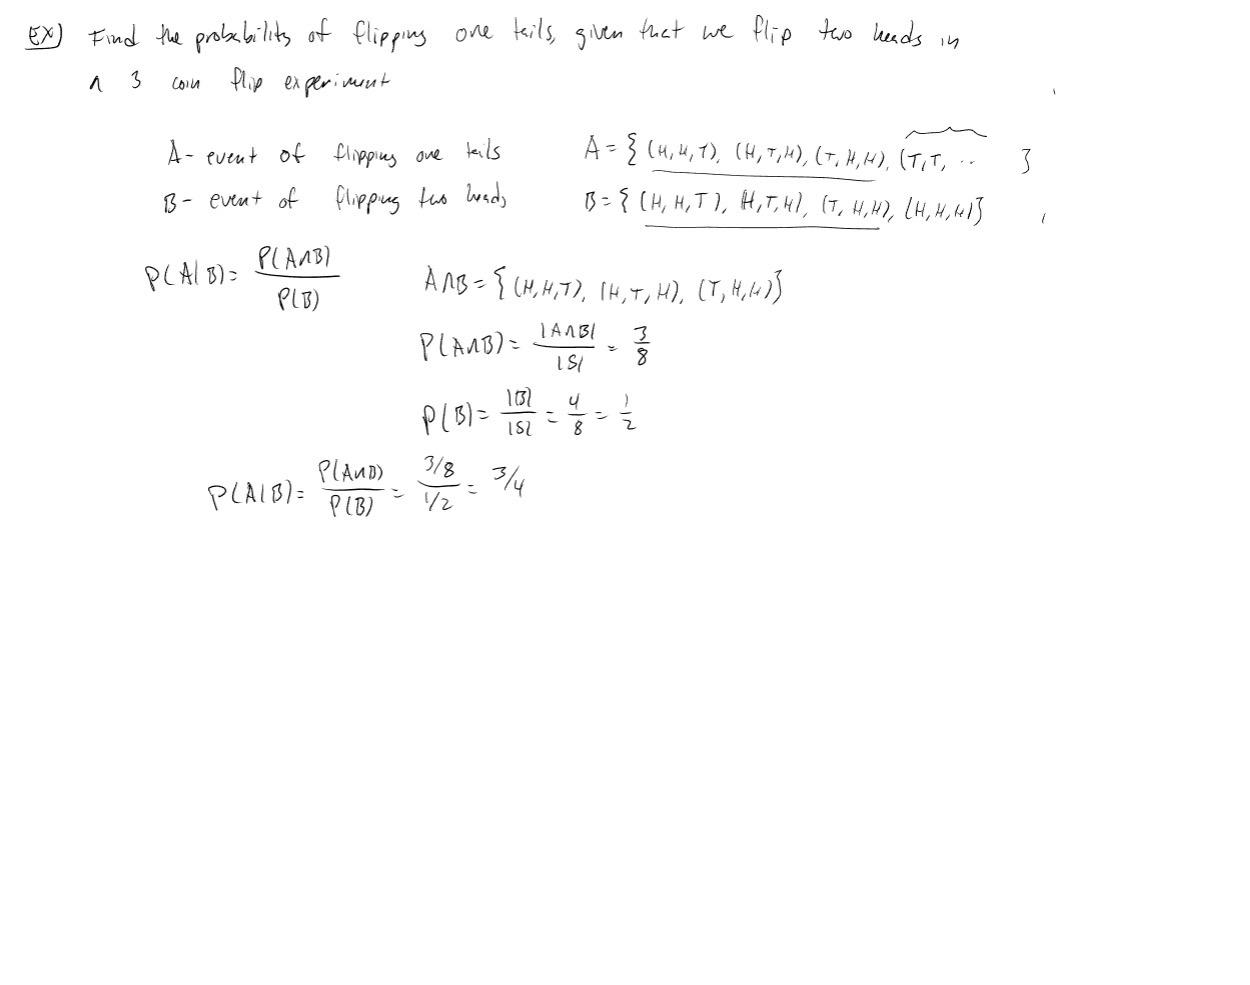 EX) Find the probability of flipping one tails, given that we flip two heads in
a 3 coin flip experiment
A- event of flipping one tails A = { (H,H,T), (H,T,H), (T,H,H), (T,T, .. }
B- event of flipping two heads B = { (H,H,T), (H,T,H), (T,H,H), (H,H,H) }
P(A|B) = P(A∩B) / P(B) A∩B = { (H,H,T), (H,T,H), (T,H,H) }
P(A∩B) = |A∩B| / |S| = 3/8
P(B) = |B| / |S| = 4/8 = 1/2
P(A|B) = P(A∩B) / P(B) = 3/8 / 1/2 = 3/4